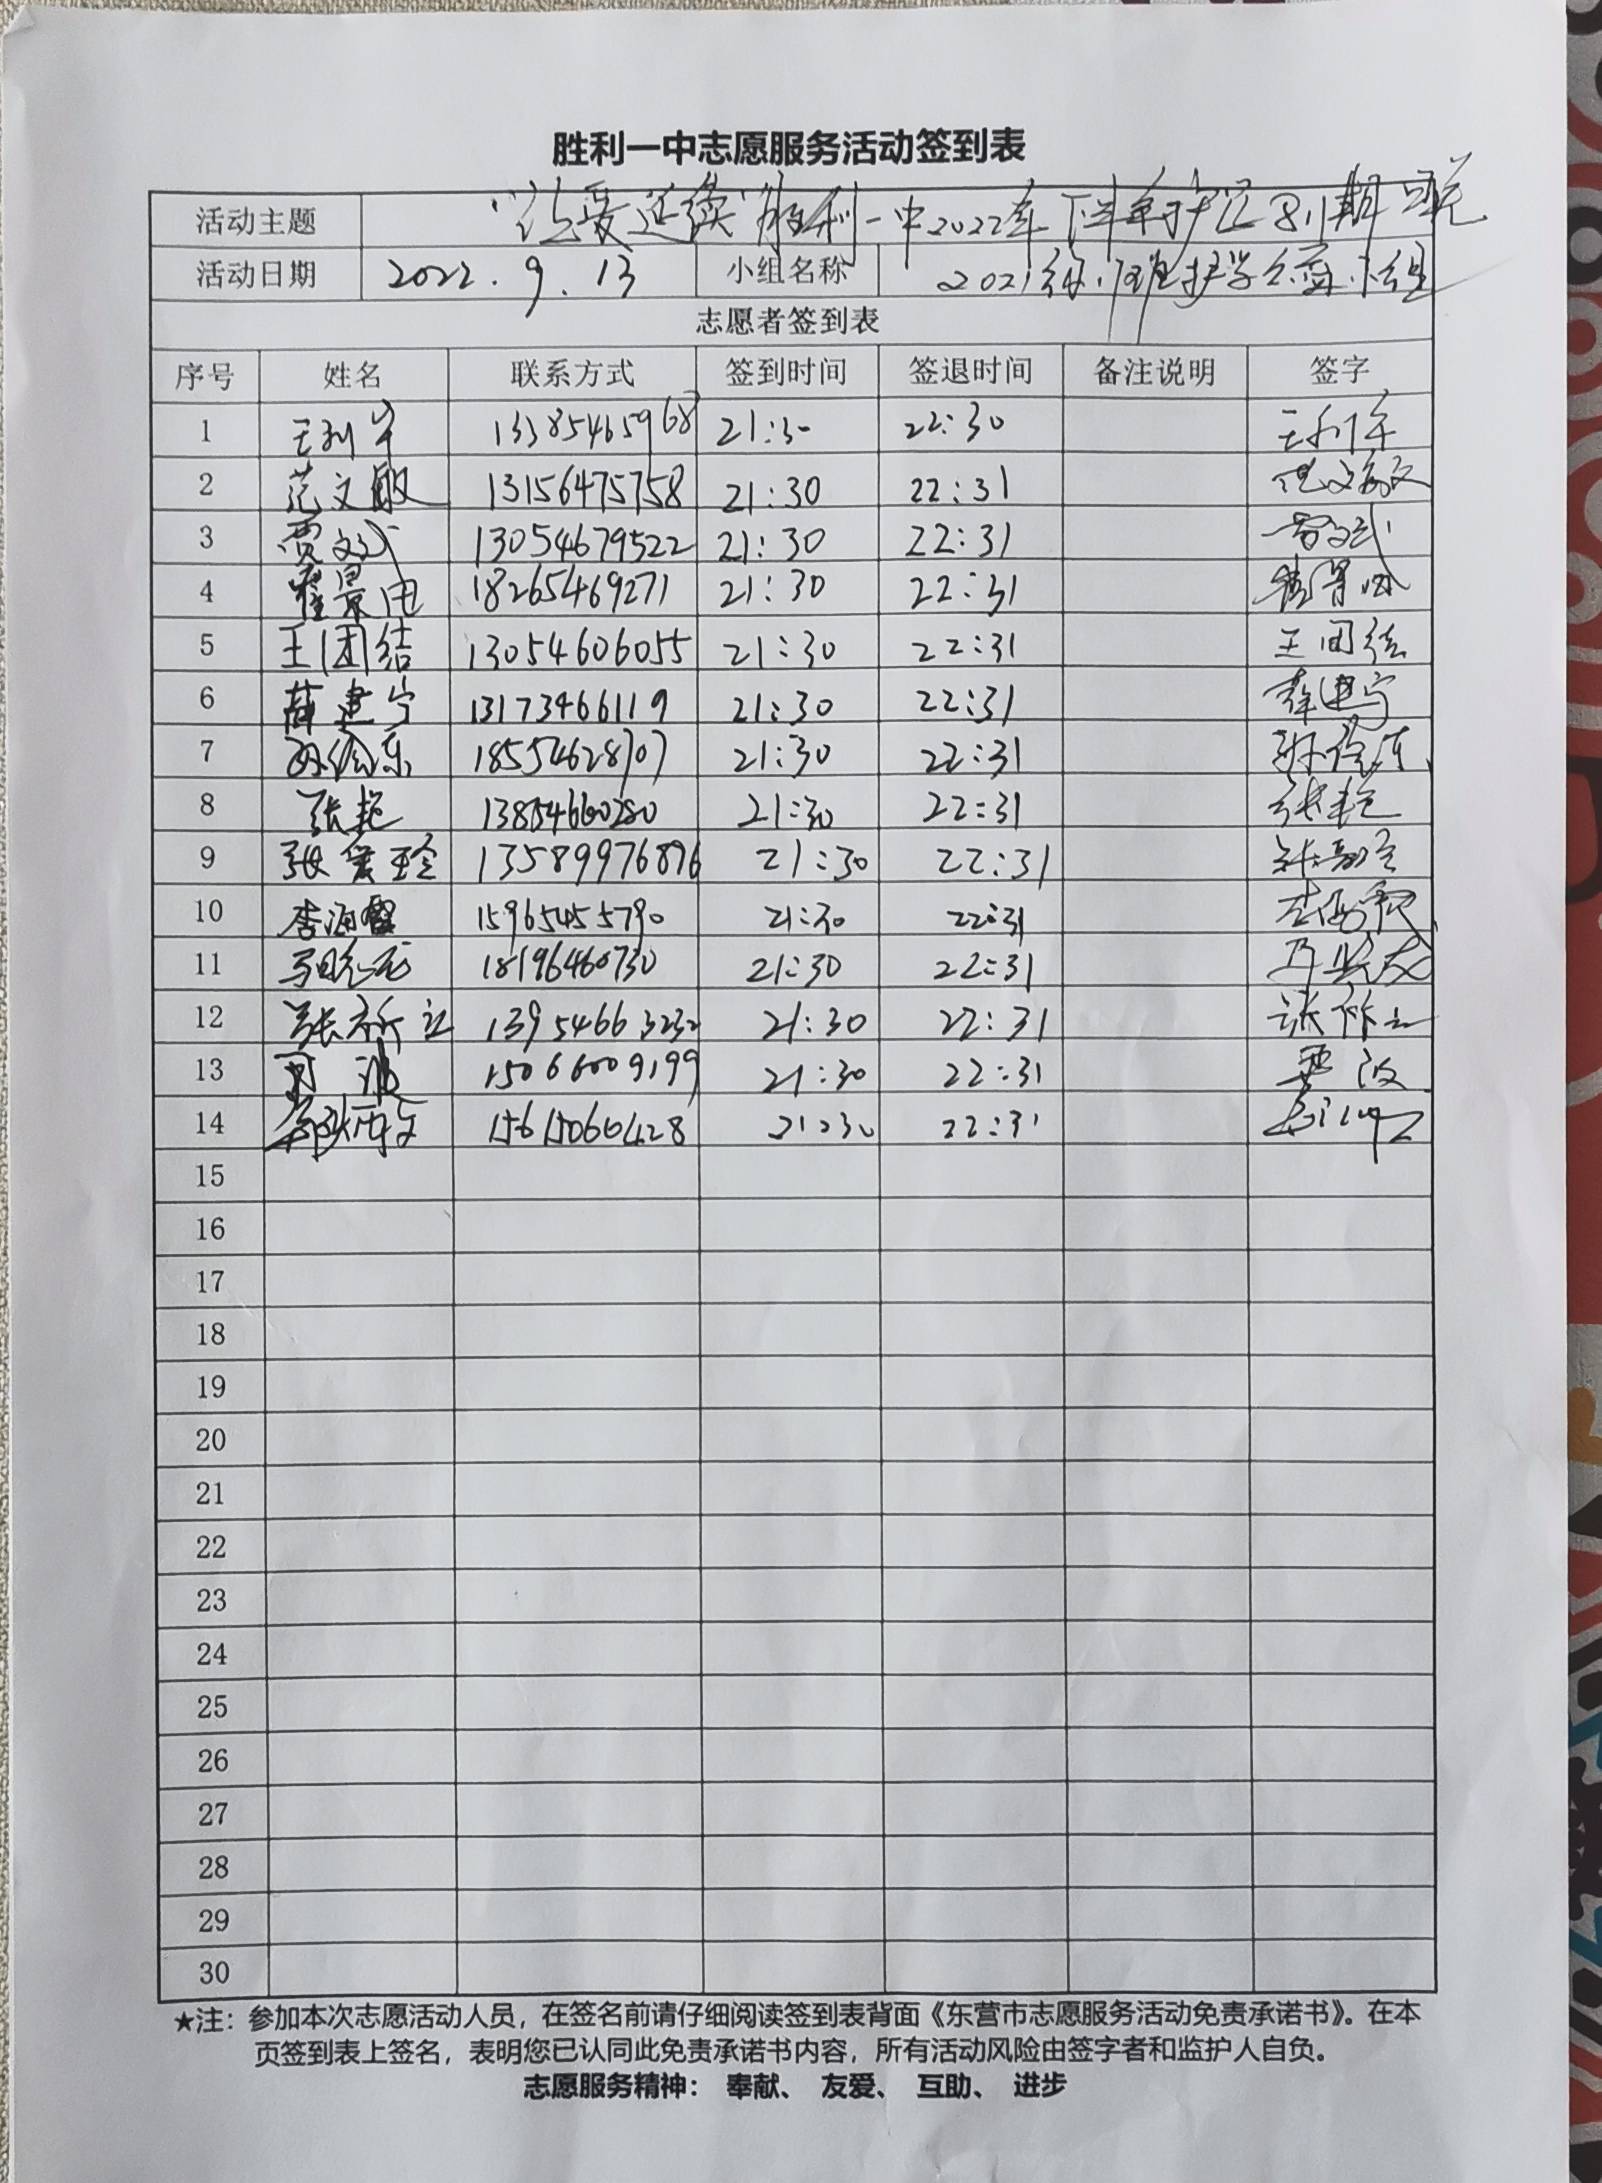 胜利一中志愿服务活动签到表
活动主题 "让爱延续"胜利一中2022年下半年护
活动日期 2022.9.13 小组名称 2021级 班护学 小组
志愿者签到表
序号 姓名 联系方式 签到时间 签退时间 备注说明 签字
1 王利军 13385465968 21:30 22:30 王利军
2 范文敏 13156475758 21:30 22:31 范文敏
3 贾文武 13054679522 21:30 22:31
4 景 18265469271 21:30 22:31
5 王团结 13054606055 21:30 22:31 王团结
6 薛建宁 13173466119 21:30 22:31 薛建宁
7 东 18554628707 21:30 22:31
8 张艳 13854660280 21:30 22:31 张艳
9 张爱玲 13589976876 21:30 22:31 张爱玲
10 李海霞 15965455790 21:30 22:31 李海霞
11 18196460730 21:30 22:31
12 张新立 13954663232 21:30 22:31
13 波 15066009199 21:30 22:31 波
14 15615060428 21:30 22:31
15
16
17
18
19
20
21
22
23
24
25
26
27
28
29
30
★注：参加本次志愿活动人员，在签名前请仔细阅读签到表背面《东营市志愿服务活动免责承诺书》。在本
页签到表上签名，表明您已认同此免责承诺书内容，所有活动风险由签字者和监护人自负。
志愿服务精神： 奉献、 友爱、 互助、 进步